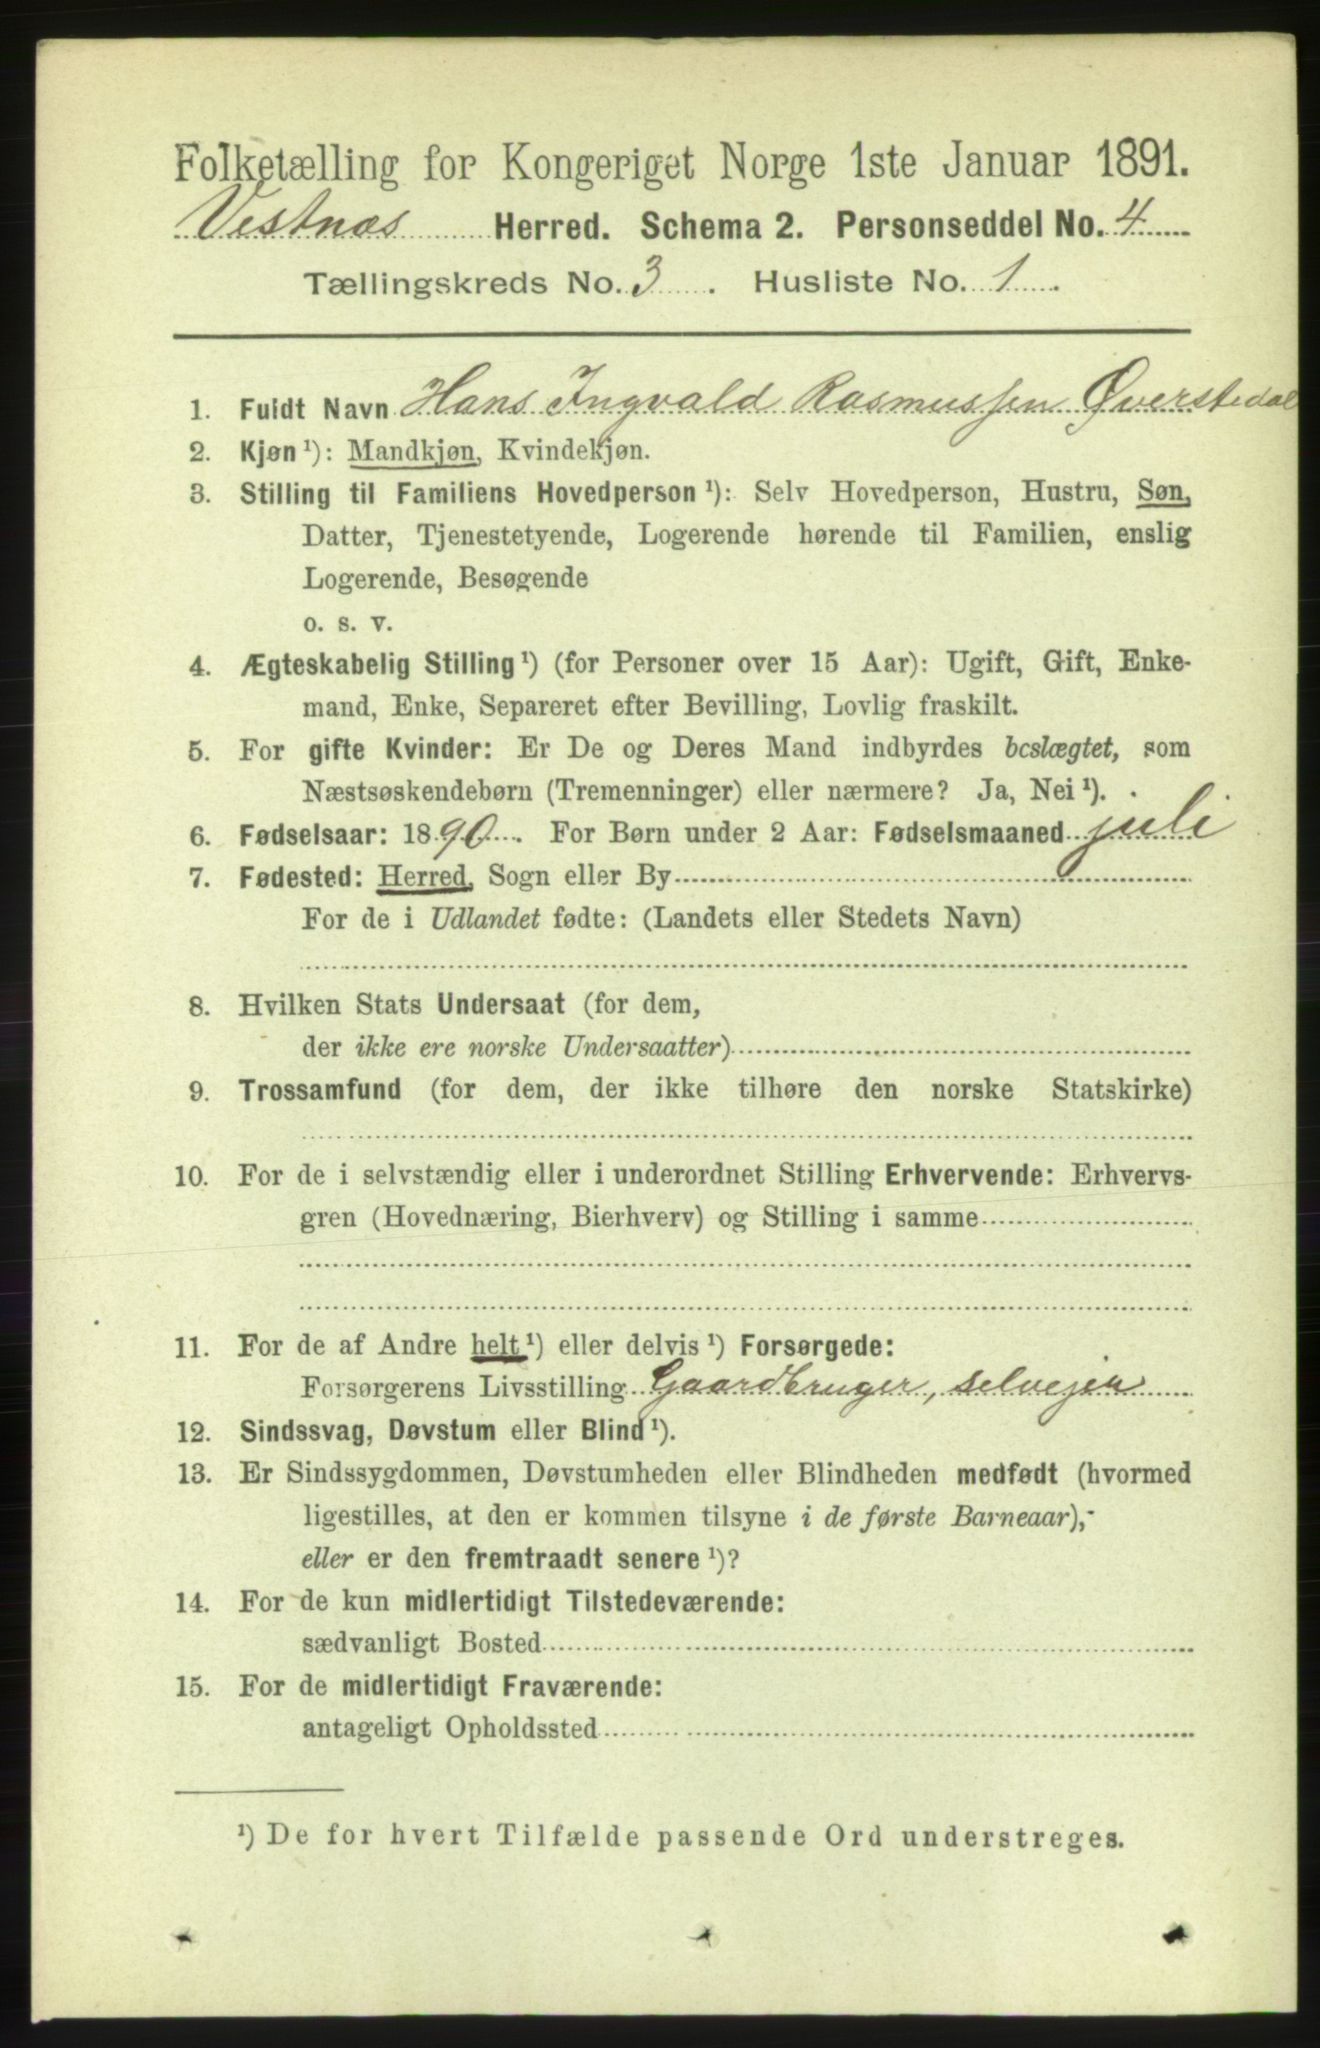 Folketælling for Kongeriget Norge 1ste Januar 1891.
Vestnæs Herred. Schema 2. Personseddel No. 4
Tællingskreds No. 3. Husliste No. 1.
1. Fuldt Navn Hans Ingvald Rasmussen Øverstedal
2. Kjøn¹): Mandkjøn, Kvindekjøn.
3. Stilling til Familiens Hovedperson¹): Selv Hovedperson, Hustru, Søn,
Datter, Tjenestetyende, Logerende hørende til Familien, enslig
Logerende, Besøgende
o. s. v.
4. Ægteskabelig Stilling¹) (for Personer over 15 Aar): Ugift, Gift, Enke-
mand, Enke, Separeret efter Bevilling, Lovlig fraskilt.
5. For gifte Kvinder: Er De og Deres Mand indbyrdes beslægtet, som
Næstsøskendebørn (Tremenninger) eller nærmere? Ja, Nei¹).
6. Fødselsaar: 1890. For Børn under 2 Aar: Fødselsmaaned juli
7. Fødested: Herred, Sogn eller By
For de i Udlandet fødte: (Landets eller Stedets Navn)
8. Hvilken Stats Undersaat (for dem,
der ikke ere norske Undersaatter)
9. Trossamfund (for dem, der ikke tilhøre den norske Statskirke)
10. For de i selvstændig eller i underordnet Stilling Erhvervende: Erhvervs-
gren (Hovednæring, Bierhverv) og Stilling i samme
11. For de af Andre helt¹) eller delvis¹) Forsørgede:
Forsørgerens Livsstilling Gaardbruger, selvejer
12. Sindssvag, Døvstum eller Blind¹).
13. Er Sindssygdommen, Døvstumheden eller Blindheden medfødt (hvormed
ligestilles, at den er kommen tilsyne i de første Barneaar),
eller er den fremtraadt senere¹)?
14. For de kun midlertidigt Tilstedeværende:
sædvanligt Bosted
15. For de midlertidigt Fraværende:
antageligt Opholdssted
¹) De for hvert Tilfælde passende Ord understreges.